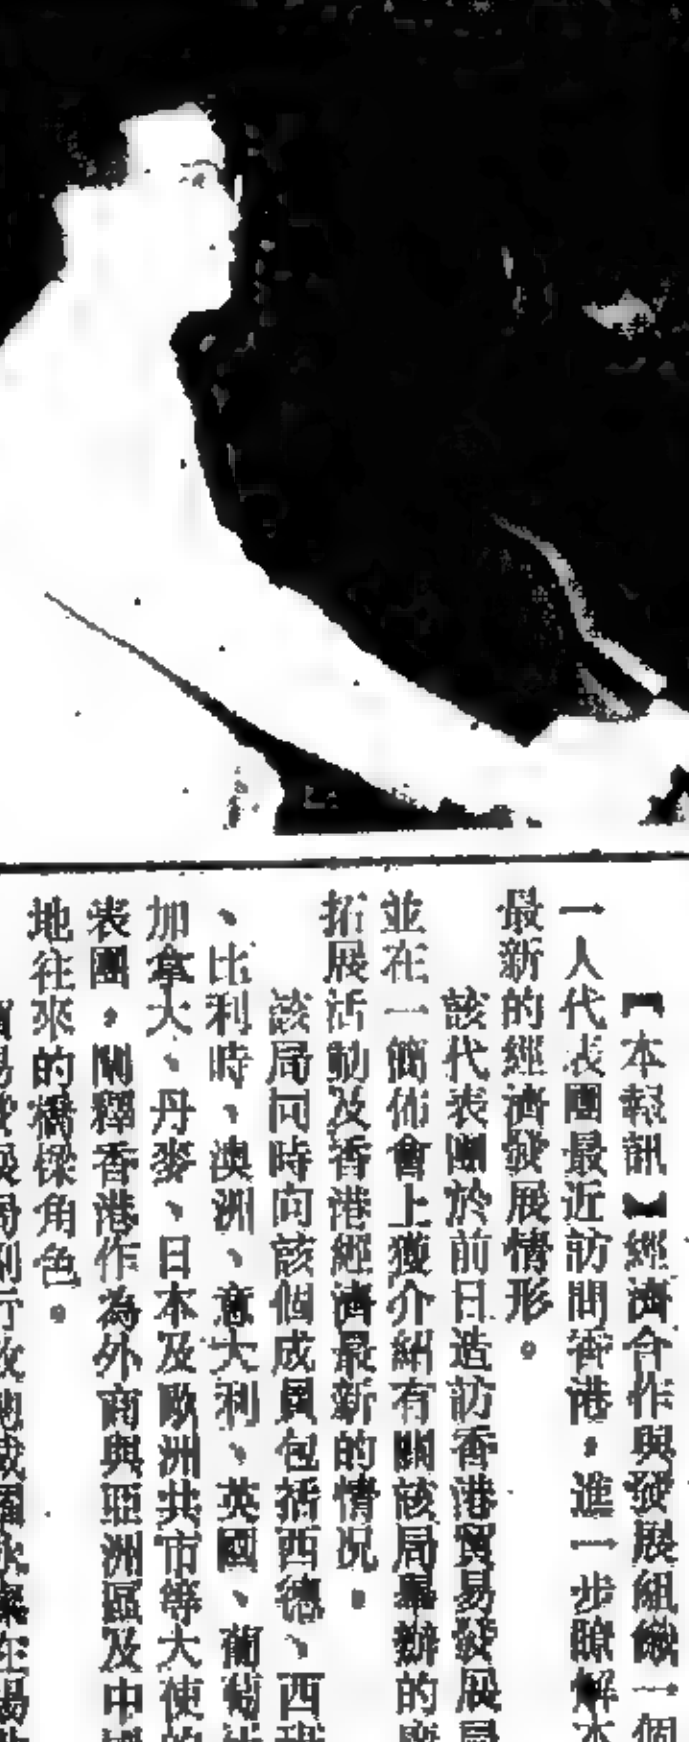 【本報訊】經濟合作與發展組織一個
一人代表團最近訪問香港，進一步瞭解本
最新的經濟發展情形。
該代表團於前日造訪香港貿易發展局
並在一簡佈會上獲介紹有關該局舉辦的
拓展活動及香港經濟最新的情况。
該局同時向該個成員包括西德、西班
、比利時、澳洲、意大利、英國、葡萄
加拿大、丹麥、日本及歐洲共市等大使的
表團，闡釋香港作為外商與亞洲區及中國
地往來的橋樑角色。